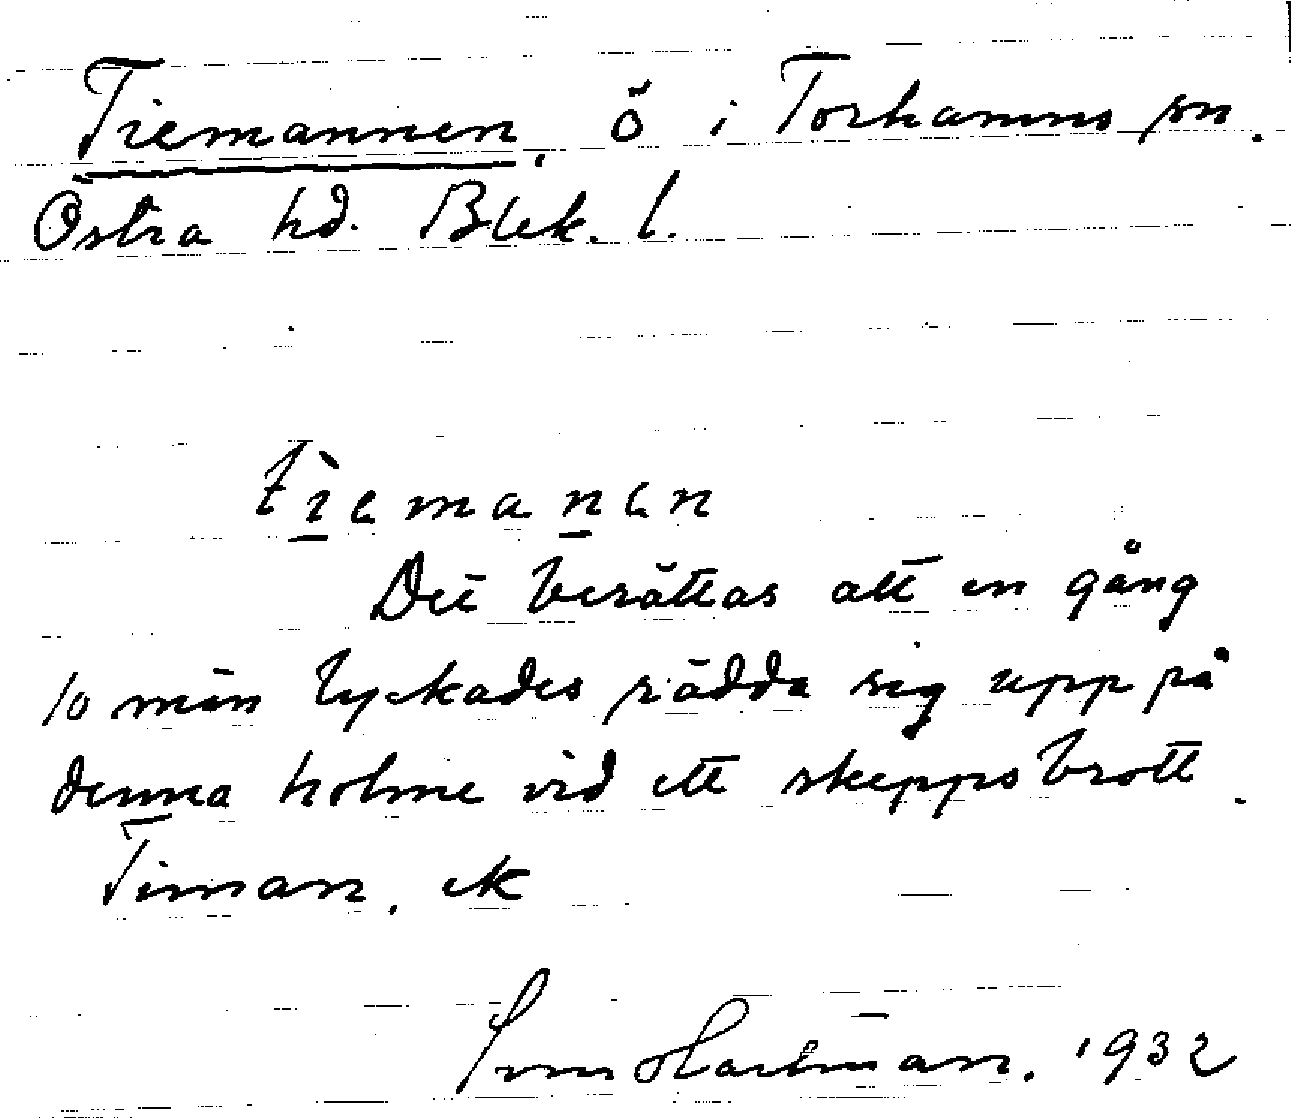 Tiemannen, ö i Torhamns sn.
Östra hd. Blek. l.
tìemanen
Det berättas att en gång
10 män lyckades rädda sig upp på
denna holme vid ett skeppsbrott.
Timan. ek
Hartman. 1932